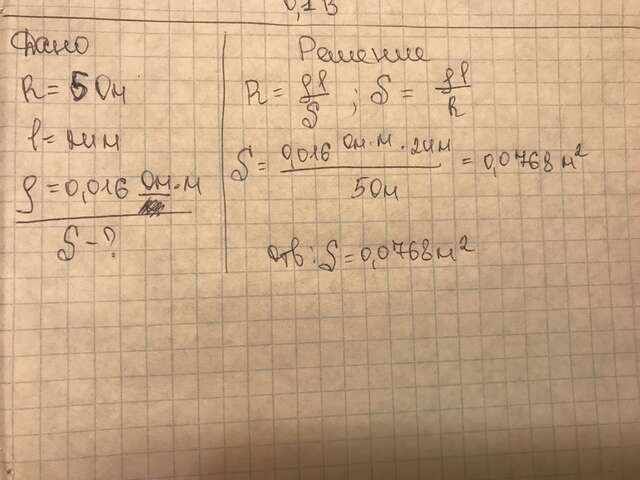 0,1 В
Дано
R = 5 Ом
l = м
ρ = 0,016 Ом·м
S - ?
Решение
R = ρl/S ; S = ρl/R
S = 0,016 Ом·м · 24м / 5 Ом = 0,0768 м²
отв: S = 0,0768 м²